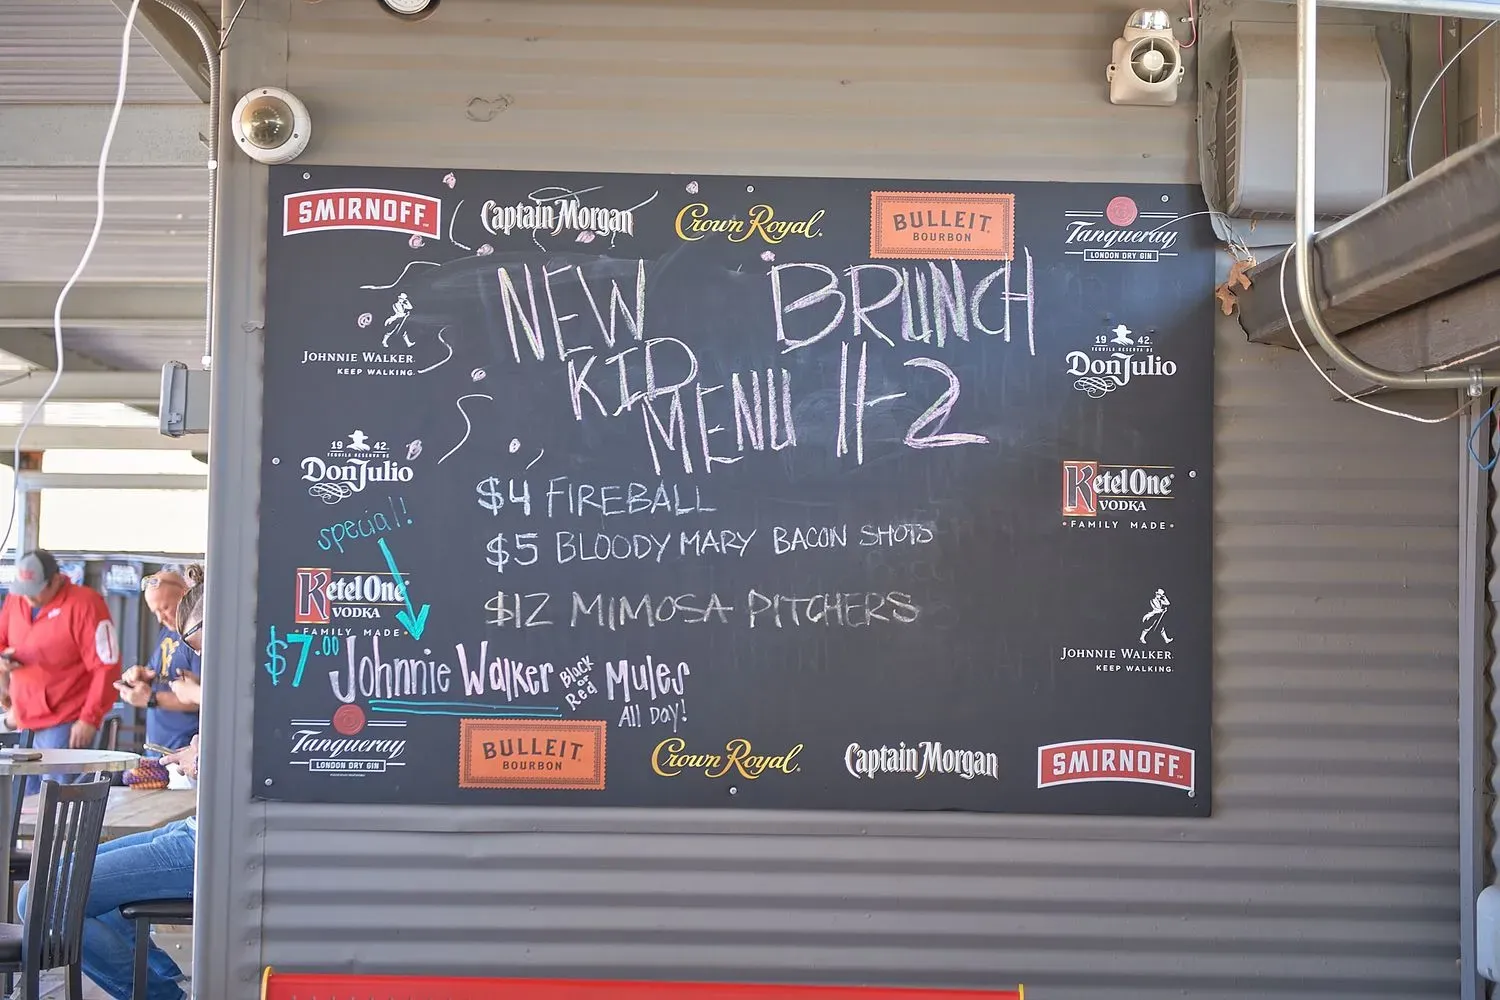 SMIRNOFF Captain Morgan Crown Royal. BULLEIT BOURBON Tanqueray LONDON DRY GIN
NEW BRUNCH
KID MENU 11-2
JOHNNIE WALKER.
KEEP WALKING.
19 42.
TEQUILA RESERVA DE
Don Julio
19 42.
TEQUILA RESERVA DE
Don Julio
$4 FIREBALL
$5 BLOODY MARY BACON SHOTS
$12 MIMOSA PITCHERS
Ketel One
VODKA
• FAMILY MADE •
special!
Ketel One
VODKA
FAMILY MADE •
JOHNNIE WALKER.
KEEP WALKING.
$7.00 Johnnie Walker Black or Red Mules
All Day!
Tanqueray LONDON DRY GIN BULLEIT BOURBON Crown Royal. Captain Morgan SMIRNOFF